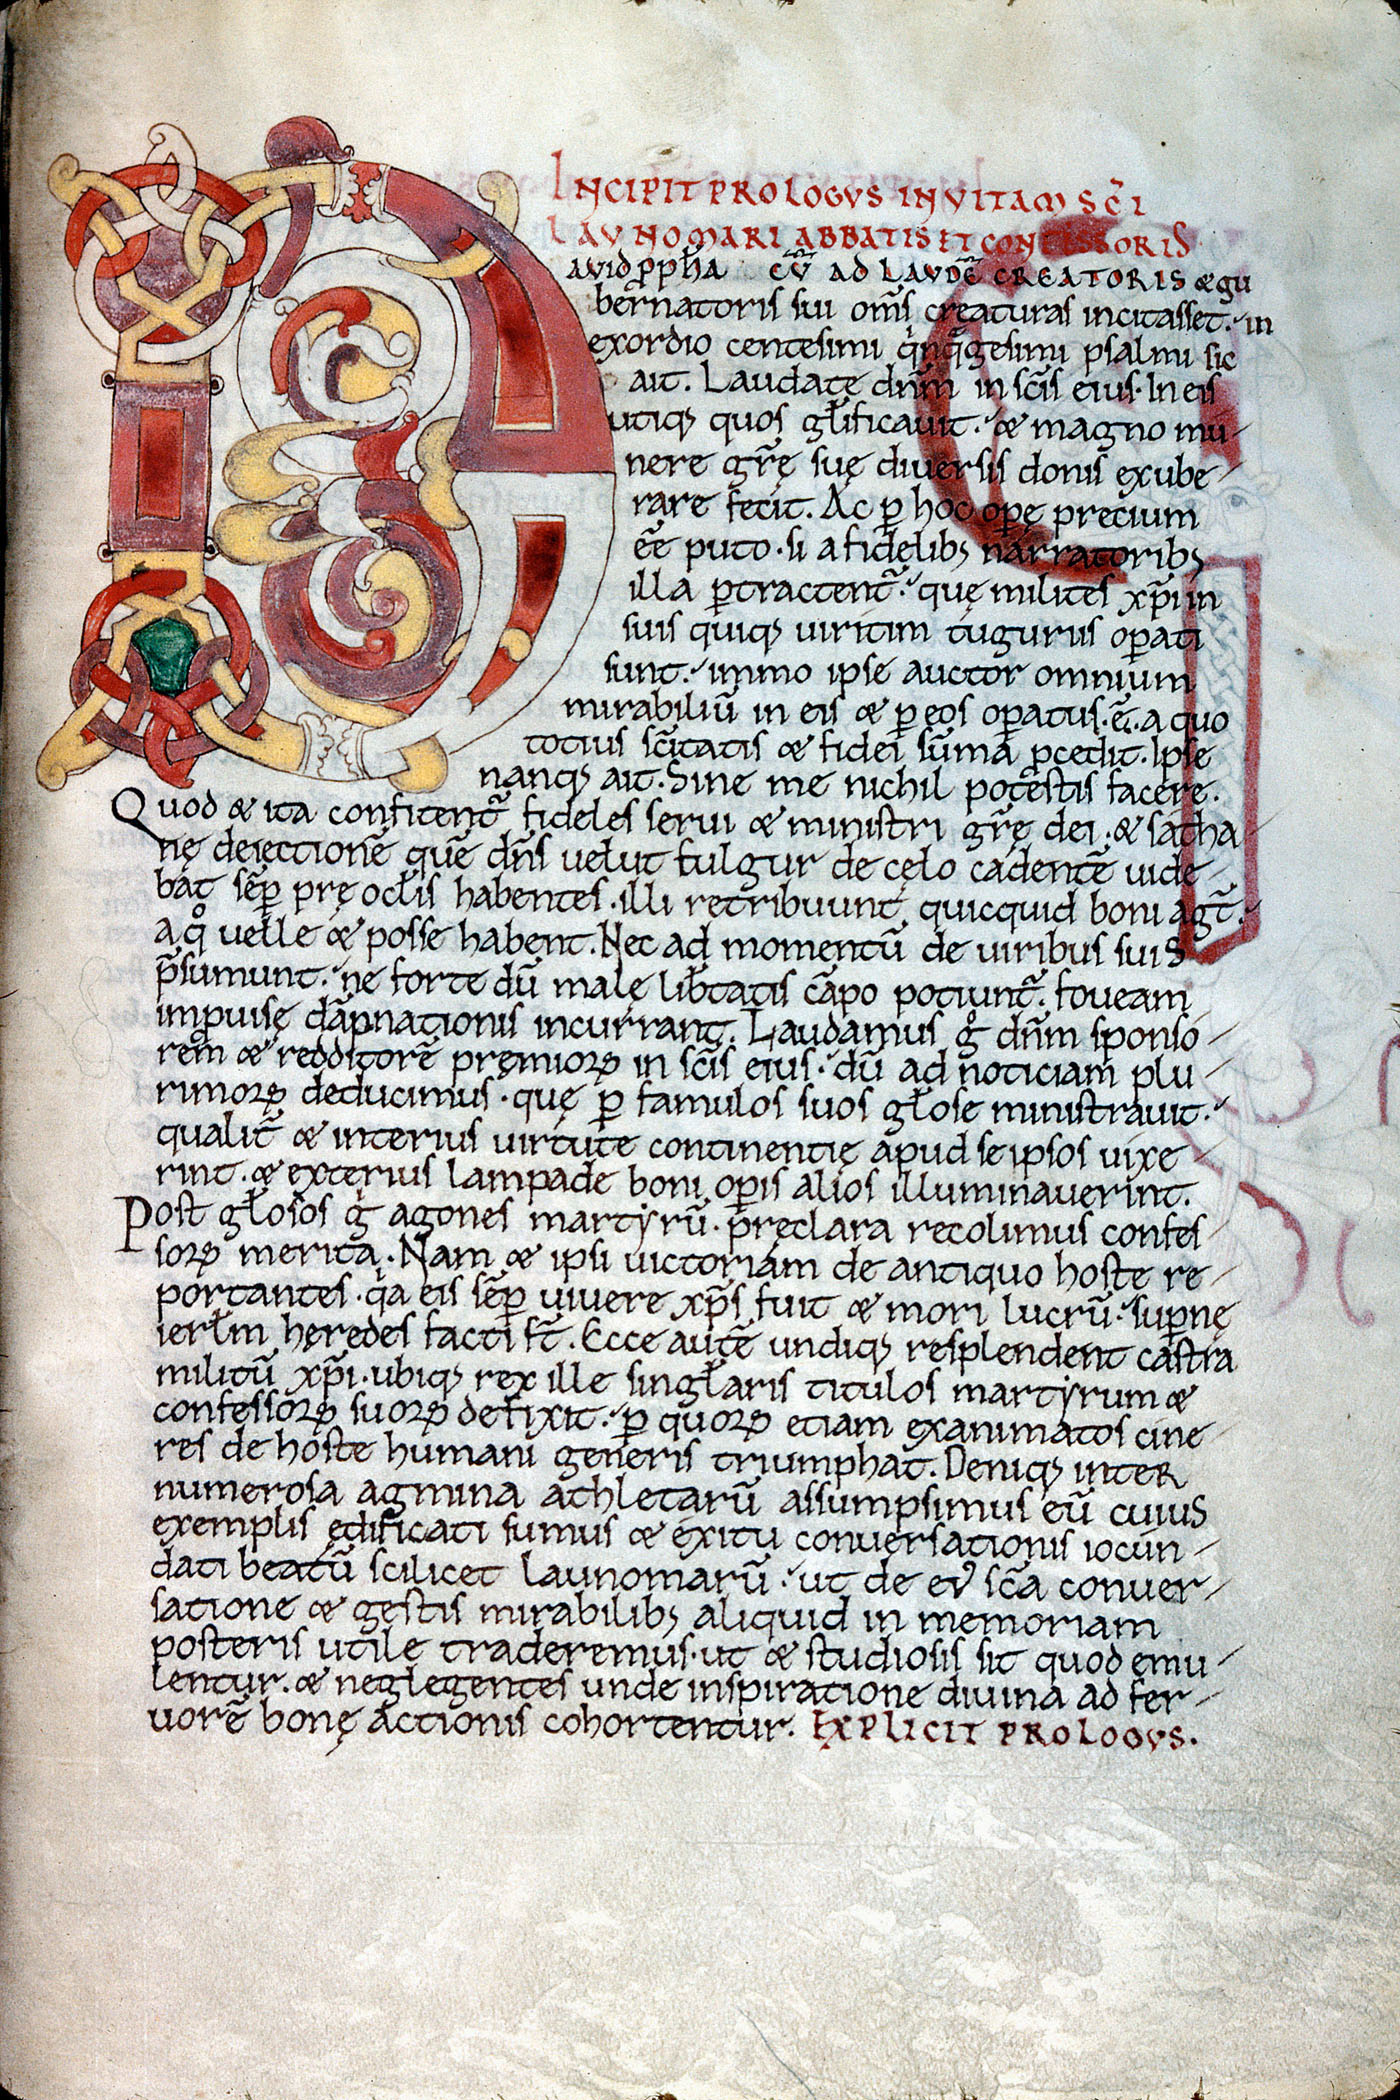 INCIPIT PROLOGUS IN VITAM SC̄I
LAUNOMARI ABBATIS ET CONFESSORIS
DAVID PPHA CŪ AD LAVDĒ CREATORIS & gu
bernatoris sui om̄s creaturas incitasset. in
exordio centesimi qinqgesimi psalmi sic
ait. Laudate dn̄m in sc̄is eius. In eis
utiq; quos głificauit. & magno mu
nere gr̄ę suę diuersis donis exube
rare fecit. Ac ꝑ hoc operę precium
ēē puto. si a fidelib; narratoribs
illa ꝑtractent᷑. quę milites xp̄i in
suis quiq; uiritim tuguriis oꝑati
sunt. immo ipse auctor omnium
mirabiliū in eis & ꝑ eos oꝑatus. ē. a quo
totius sc̄itatis & fidei sūma ꝓcedit. Ipse
nanq; ait. Sine me nichil potestis facere.
Quod & ita confitent᷑ fideles serui & ministri gr̄ę dei. & satha
nę deiectionē quē dn̄s uelut fulgur de cęlo cadentē uide
bat sēꝑ prę oclis habentes. illi retribuunt quicquid boni agt᷑.
a q̊ uelle & posse habent. Nec ad momentū de uiribus suis
p̄sumunt. ne forte dū malę lib̄tatis cāpo potiunt᷑. foueam
impuisę dāpnationis incurrant. Laudamus g̊ dn̄m sponso
rem & redditorē pręmioꝝ in sc̄is eius. dū ad noticiam plu
rimoꝝ deducimus. quę ꝑ famulos suos głose ministrauit.
qualit̄ & interius uirtute continentię apud se ipsos uixe
rint. & exterius lampade boni operis alios illuminauerint.
Post głosos g̊ agones martyrū. pręclara recolimus confes
soꝝ merita. Nam & ipsi uictoriam de antiquo hoste re
portantes. qa eis sēꝑ uiuere xp̄s fuit & mori lucrū. suꝑnę
ierłm hęredes facti st̄. Ecce autē undiq; resplendent castra
militū xp̄i. ubiq; rex ille singłaris titulos martyrum &
confessoꝝ suoꝝ defixit. ꝑ quoꝝ etiam exanimatos cine
res de hoste humani generis triumphat. Deniq; inter
numerosa agmina athletarū assumpsimus eū cuius
exemplis ędificati sumus & exitu conuersationis iocun
dati beatū scilicet launomarū. ut de eius sc̄a conuer
satione & gestis mirabilib; aliquid in memoriam
posteris utile traderemus. ut & studiosis sit quod emu
lentur. & neglegentes unde inspiratione diuina ad fer
uorē bonę actionis cohortentur. EXPLICIT PROLOGUS.